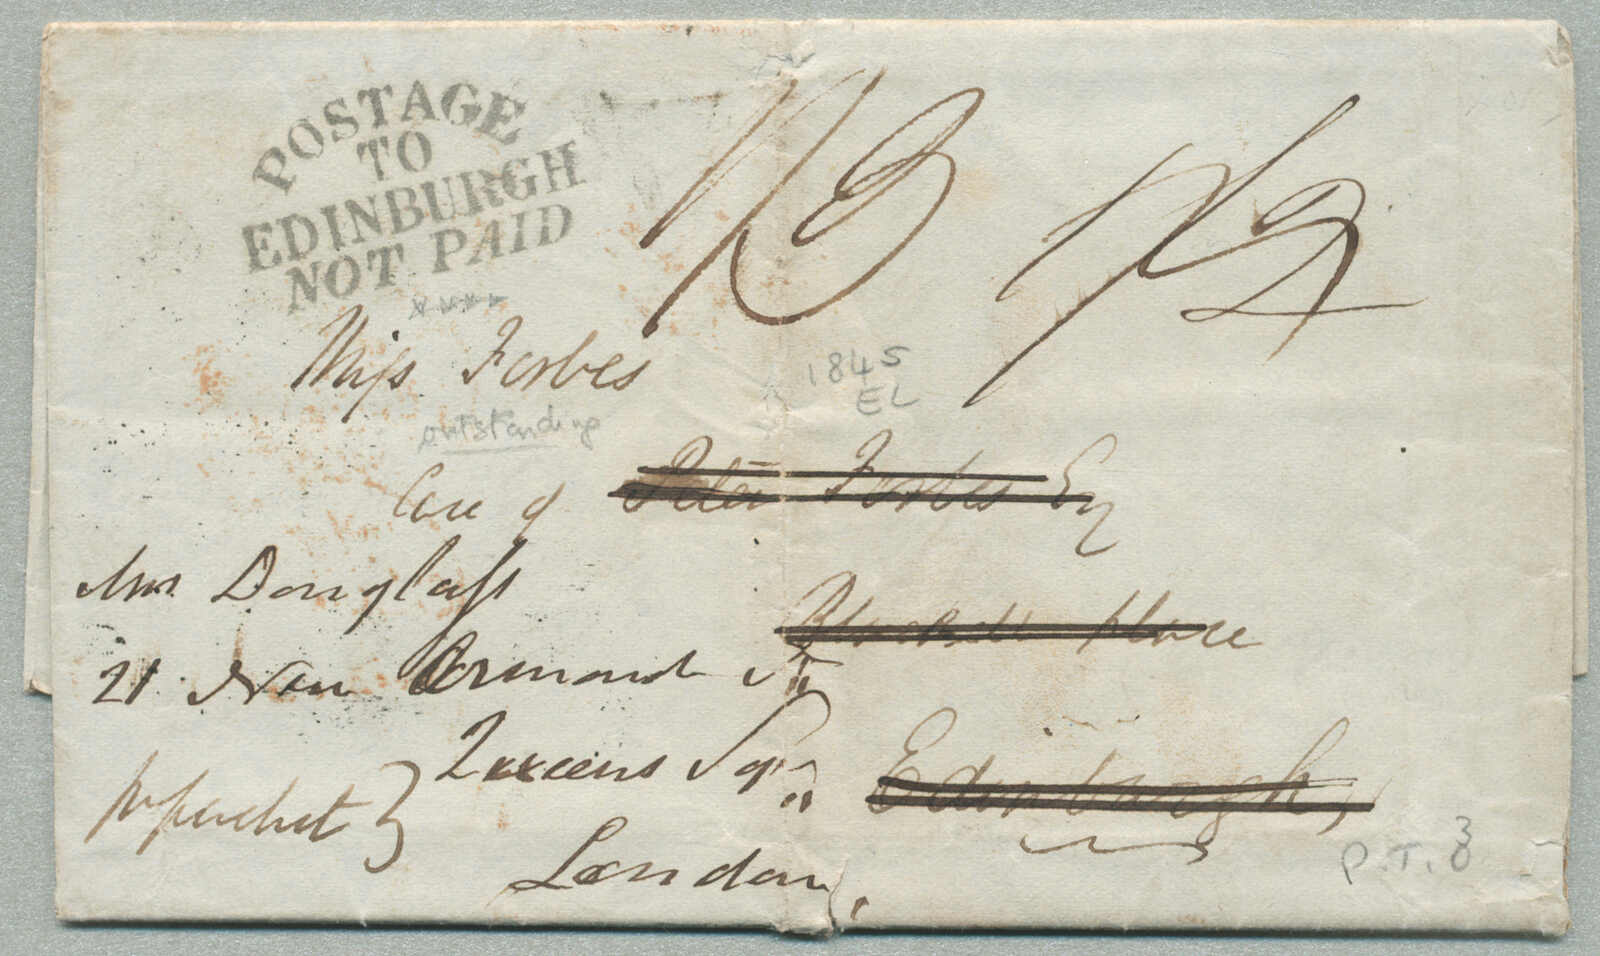 POSTAGE
TO
EDINBURGH
NOT PAID
1/3
1/2
Miss Forbes
1845
EL
outstanding
Care of Peter Forbes Esq
Mrs Douglass
Place
21 New Ormond St
Queens Sqr
Edinburgh,
London.
P.T.